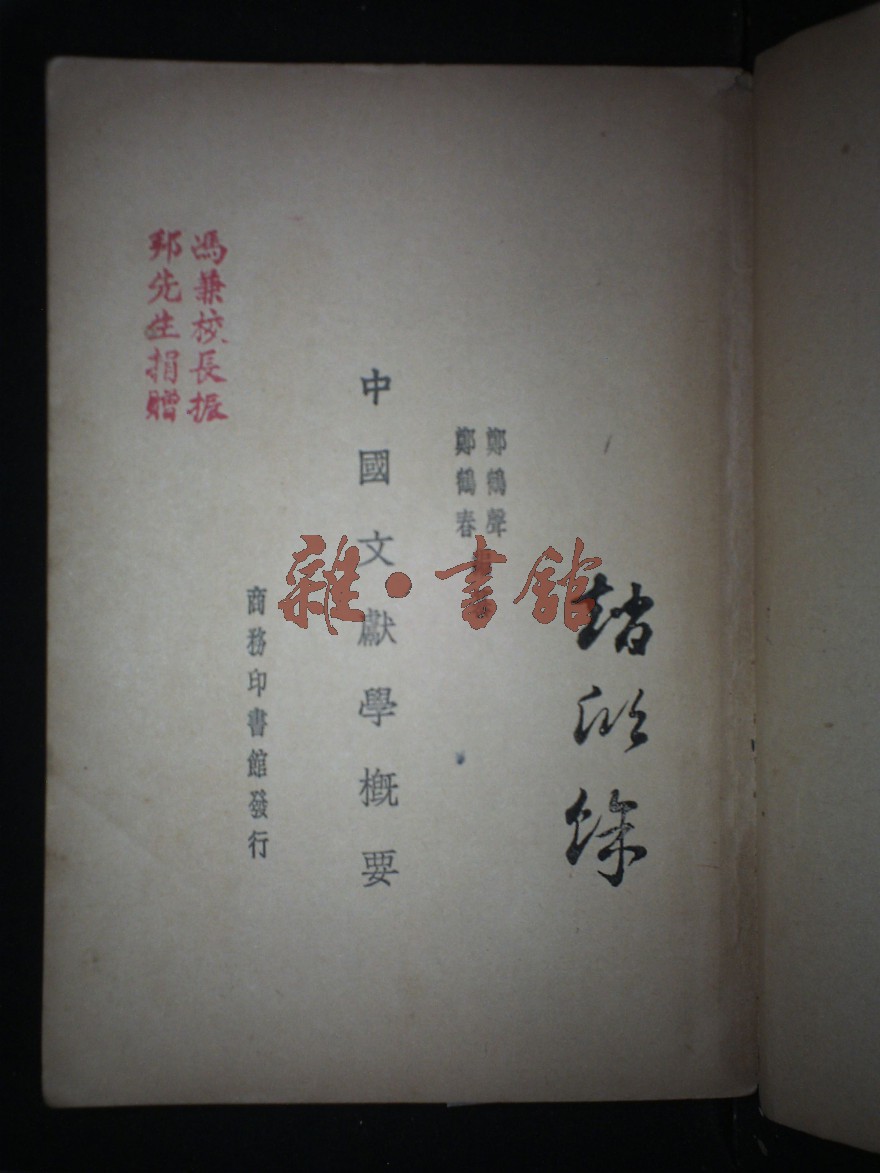 鄭鶴聲
鄭鶴春
中國文獻學概要
商務印書館發行
馮兼校長振
邦先生捐贈
雜·書館